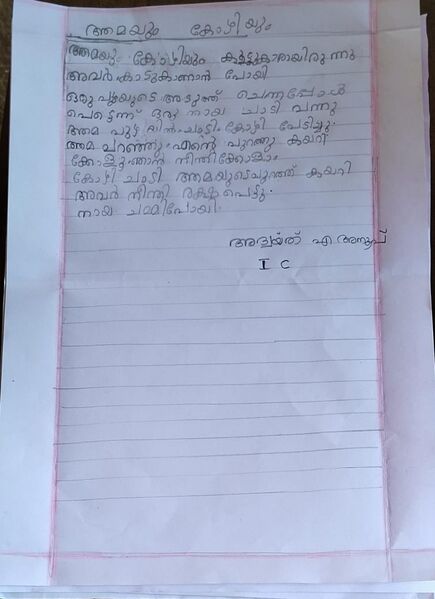 ആമയും കോഴിയും
ആമയും കോഴിയും കൂട്ടുകാരായിരുന്നു
അവർ കാടുകാണാൻ പോയി
ഒരു പുഴയുടെ അടുത്ത് ചെന്നപ്പോൾ
പെട്ടെന്ന് ഒരു നായ ചാടി വന്നു
ആമ പുഴയിൽ ചാടി. കോഴി പേടിച്ചു.
ആമ പറഞ്ഞു. എന്റെ പുറത്തു കയറി
ക്കോളു ഞാൻ നീന്തിക്കോളാം.
കോഴി ചാടി ആമയുടെപുറത്ത് കയറി
അവർ നീന്തി രക്ഷപെട്ടു.
നായ ചമ്മിപോയി.
അദ്വയ്ത് എ അനൂപ്
I C